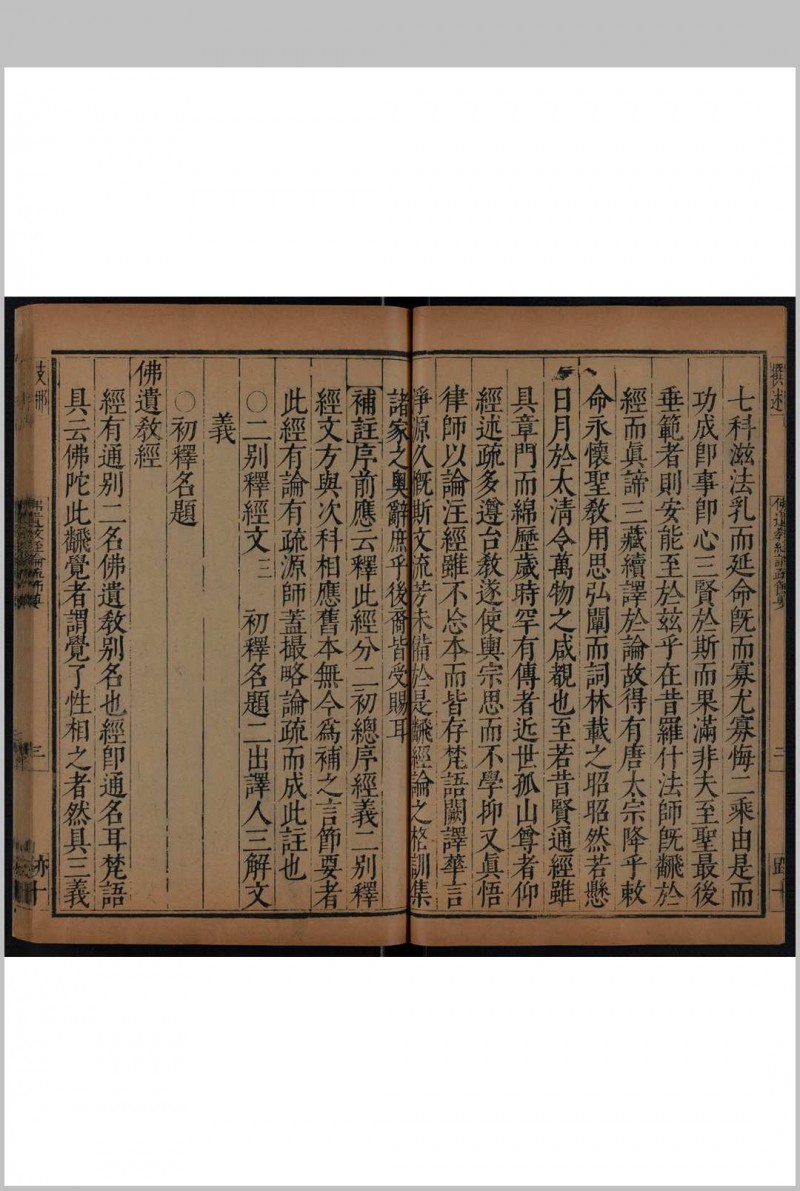 七科滋法乳而延命旣而寡尤寡悔二乘由是而
功成卽事卽心三賢於斯而果滿非夫至聖最後
垂範者則安能至於茲乎在昔羅什法師旣飜於
經而眞諦三藏續譯於論故得有唐太宗降乎敕
命永懷聖敎用思弘闡而詞林載之昭昭然若懸
日月於太清令萬物之咸覩也至若昔賢通經雖
具章門而綿歷歲時罕有傳者近世孤山尊者仰
經述疏多遵台敎遂使輿宗思而不學抑又眞悟
律師以論注經雖不忘本而皆存梵語闕譯華言
淨源久慨斯文流芳未備於是飜經論之格訓集
諸家之奧辭庶乎後裔皆受賜耳
補註序前應云釋此經分二初總序經義二別釋
經文方與次科相應舊本無今爲補之言節要者
此經有論有疏源師蓋撮略論疏而成此註也
○二別釋經文三 初釋名題二出譯人三解文
義
○初釋名題
佛遺敎經
經有通別二名佛遺敎別名也經卽通名耳梵語
具云佛陀此飜覺者謂覺了性相之者然具三義